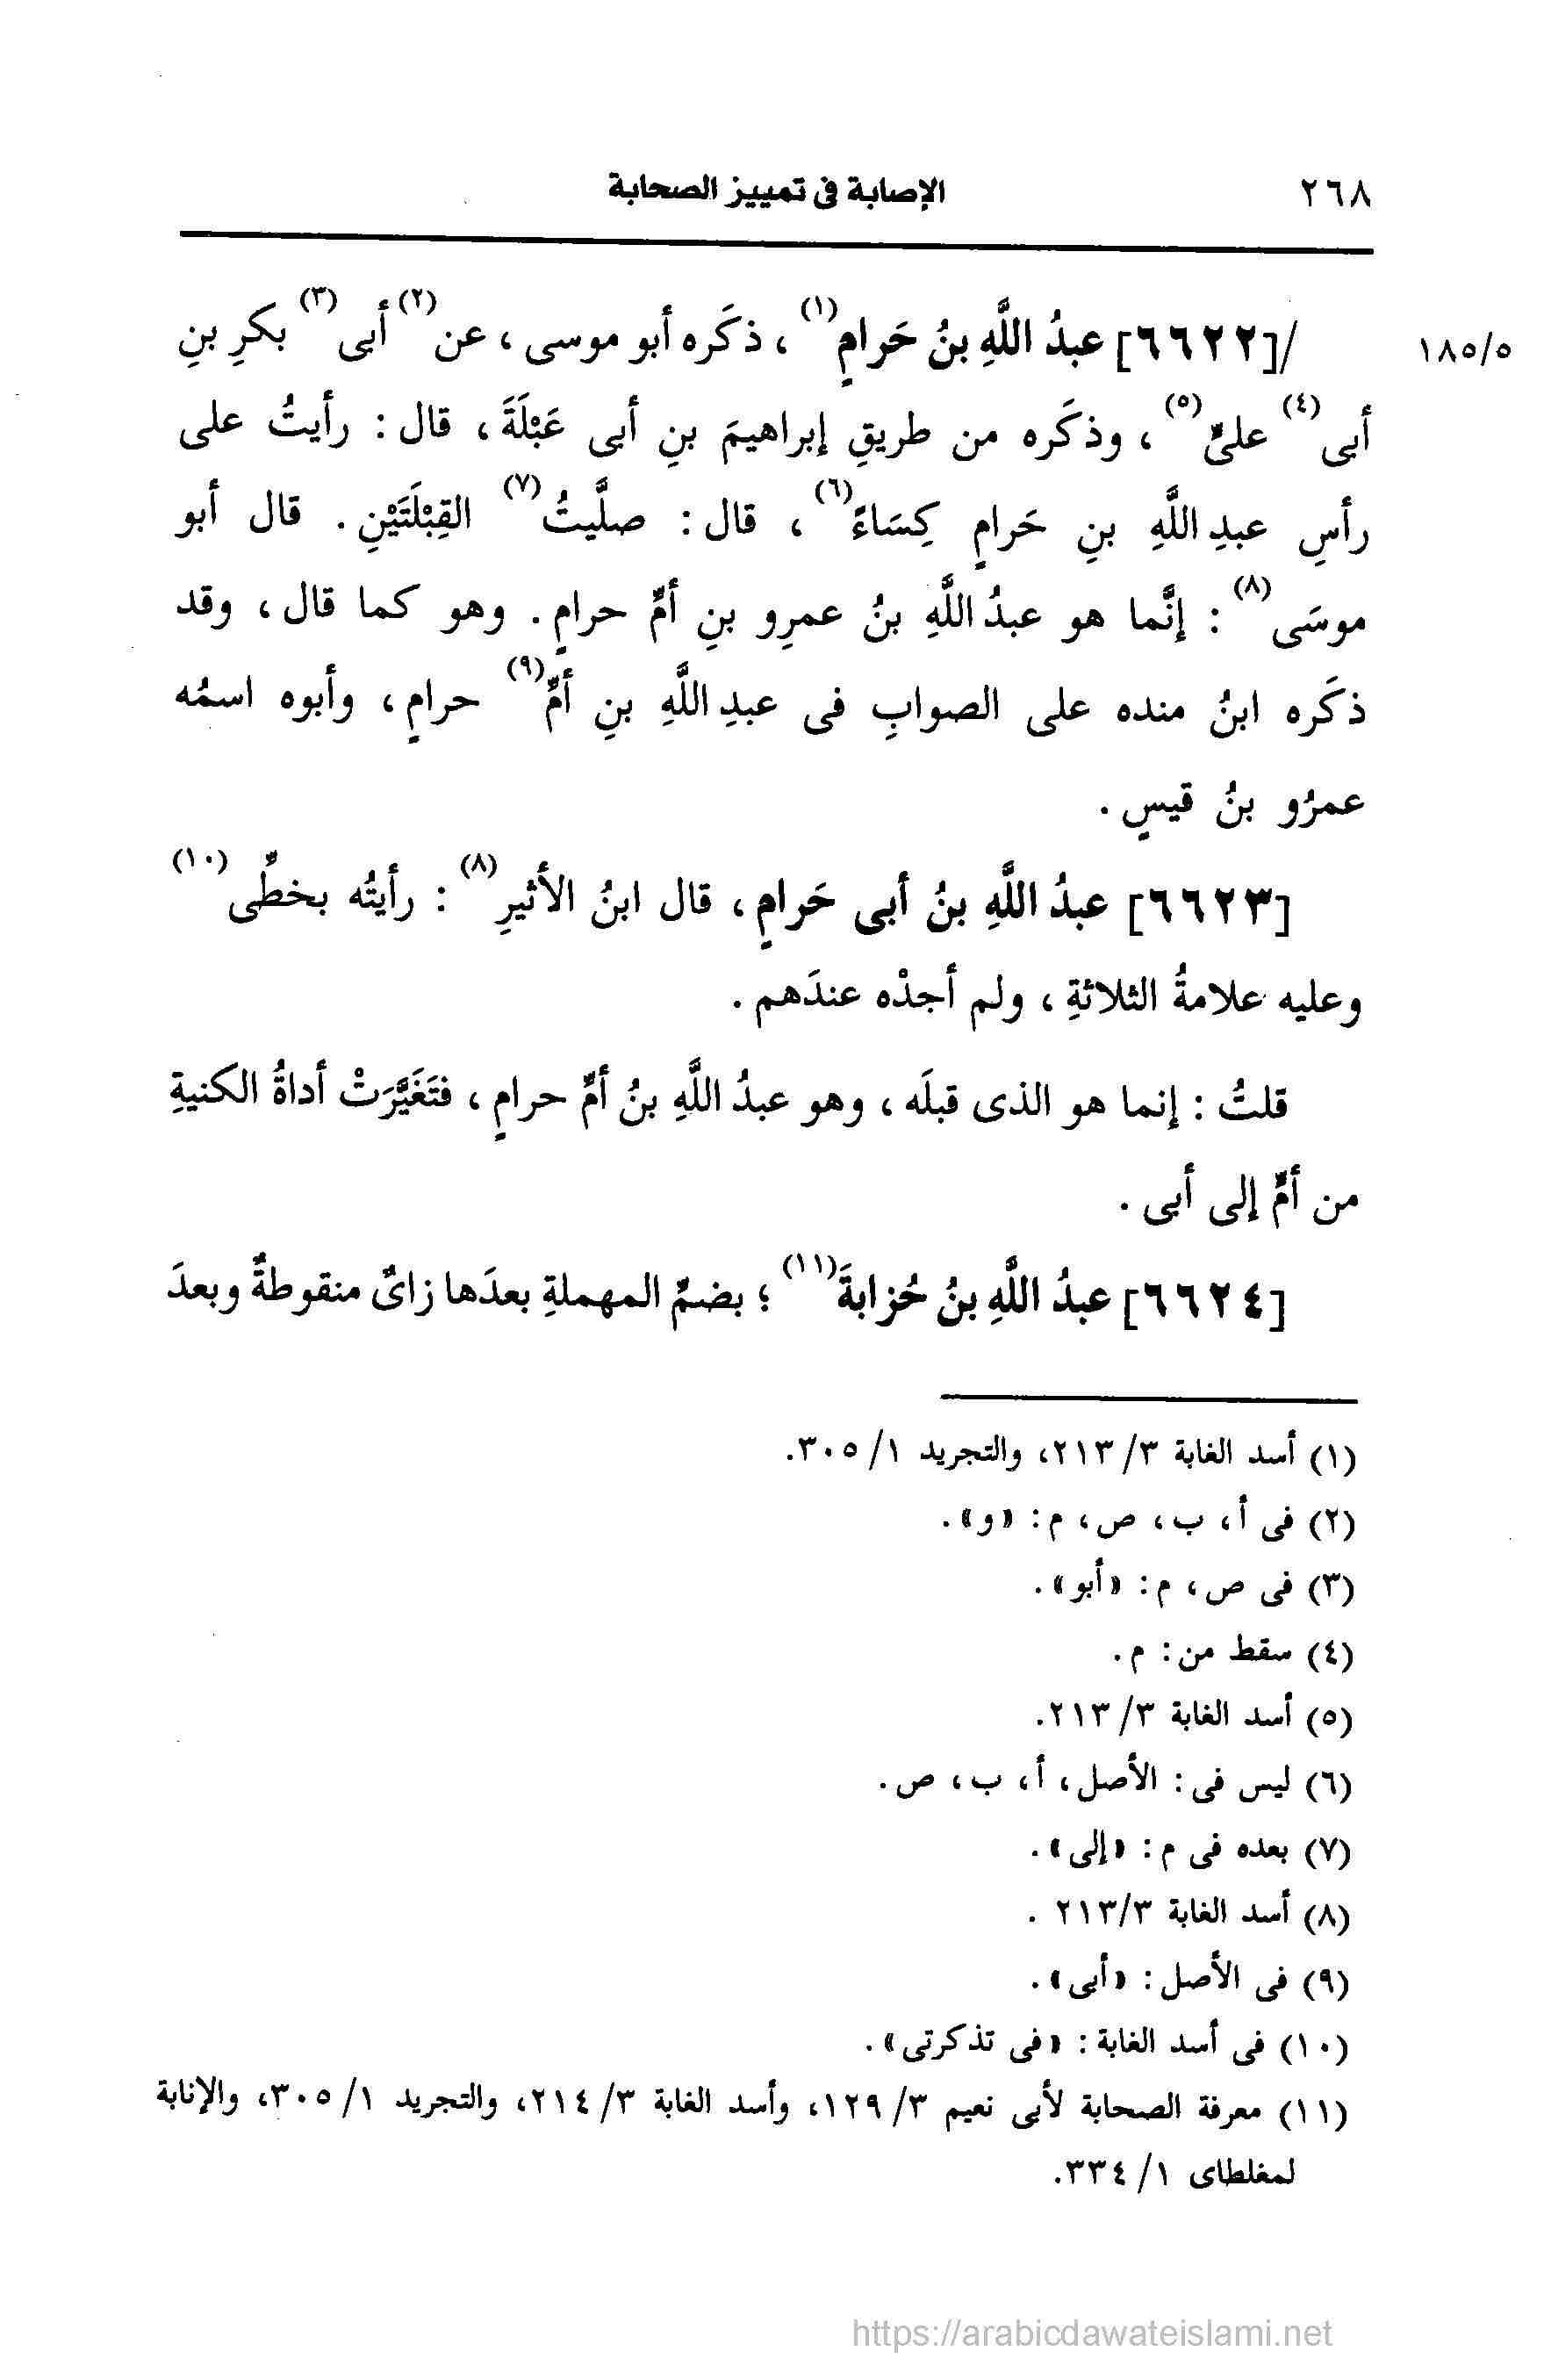 ٢٦٨ الإصابة فى تمييز الصحابة
١٨٥/٥ /[٦٦٢٢] عبدُ اللَّهِ بنُ حَرامٍ(١)، ذكَره أبو موسى، عن(٢) أبى(٣) بكرِ بنِ
أبى(٤) علىٍّ(٥)، وذكَره من طريقِ إبراهيمَ بنِ أبى عَبْلَةَ، قال: رأيتُ على
رأسِ عبدِ اللَّهِ بنِ حَرامٍ كِسَاءً(٦)، قال: صلَّيتُ(٧) القِبْلَتَيْنِ. قال أبو
موسَى(٨): إنَّما هو عبدُ اللَّهِ بنُ عمرِو بنِ أمِّ حرامٍ. وهو كما قال، وقد
ذكَره ابنُ منده على الصوابِ فى عبدِ اللَّهِ بنِ أمِّ(٩) حرامٍ، وأبوه اسمُه
عمرُو بنُ قيسٍ.
[٦٦٢٣] عبدُ اللَّهِ بنُ أبى حَرامٍ، قال ابنُ الأثيرِ(٨): رأيتُه بخطِّى(١٠)
وعليه علامةُ الثلاثةِ، ولم أجدْه عندَهم.
قلتُ: إنما هو الذى قبلَه، وهو عبدُ اللَّهِ بنُ أمِّ حرامٍ، فتَغَيَّرَتْ أداةُ الكنيةِ
من أمٍّ إلى أبى.
[٦٦٢٤] عبدُ اللَّهِ بنُ حُزابةَ(١١)؛ بضمِّ المهملةِ بعدَها زاىٌ منقوطةٌ وبعدَ
(١) أسد الغابة ٣/ ٢١٣، والتجريد ١/ ٣٠٥.
(٢) فى أ، ب، ص، م: «و».
(٣) فى ص، م: «أبو».
(٤) سقط من: م.
(٥) أسد الغابة ٣/ ٢١٣.
(٦) ليس فى: الأصل، أ، ب، ص.
(٧) بعده فى م: «إلى».
(٨) أسد الغابة ٢١٣/٣.
(٩) فى الأصل: «أبى».
(١٠) فى أسد الغابة: «فى تذكرتى».
(١١) معرفة الصحابة لأبى نعيم ٣/ ١٢٩، وأسد الغابة ٣/ ٢١٤، والتجريد ١/ ٣٠٥، والإنابة
لمغلطاى ١/ ٣٣٤.
https://arabicdawateislami.net